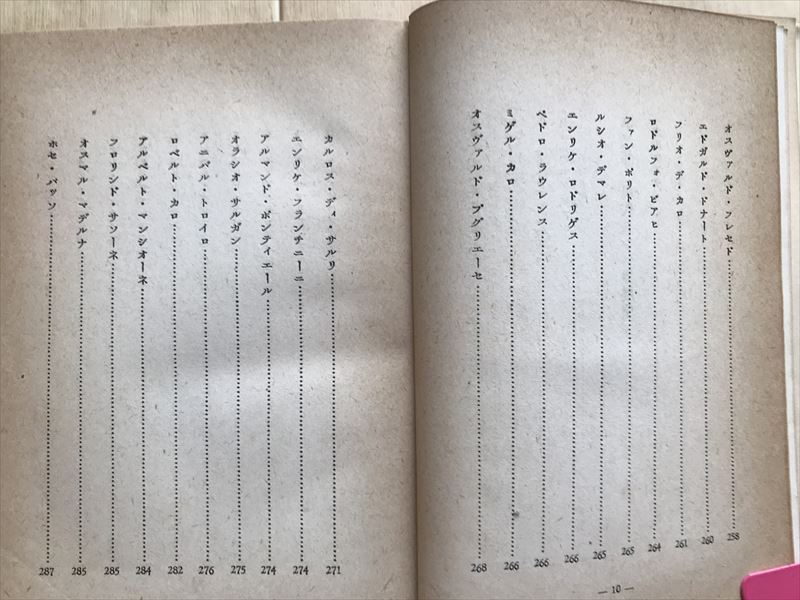 オスヴァルド・フレセド……258
エドガルド・ドナート……260
フリオ・デ・カロ……261
ロドルフォ・ビアヒ……264
ファン・ポリト……265
ルシオ・デマレ……265
エンリケ・ロドリゲス……266
ペドロ・ラウレンス……266
ミゲル・カロ……266
オスヴァルド・プグリエーセ……268
— 10 —
カルロス・ディ・サルリ……271
エンリケ・フランチニーニ……274
アルマンド・ポンティエール……274
オラシオ・サルガン……275
アニバル・トロイロ……276
ロベルト・カロ……282
アルベルト・マンシオーネ……284
フロリンド・サソーネ……285
オスマル・マデルナ……285
ホセ・バッソ……287